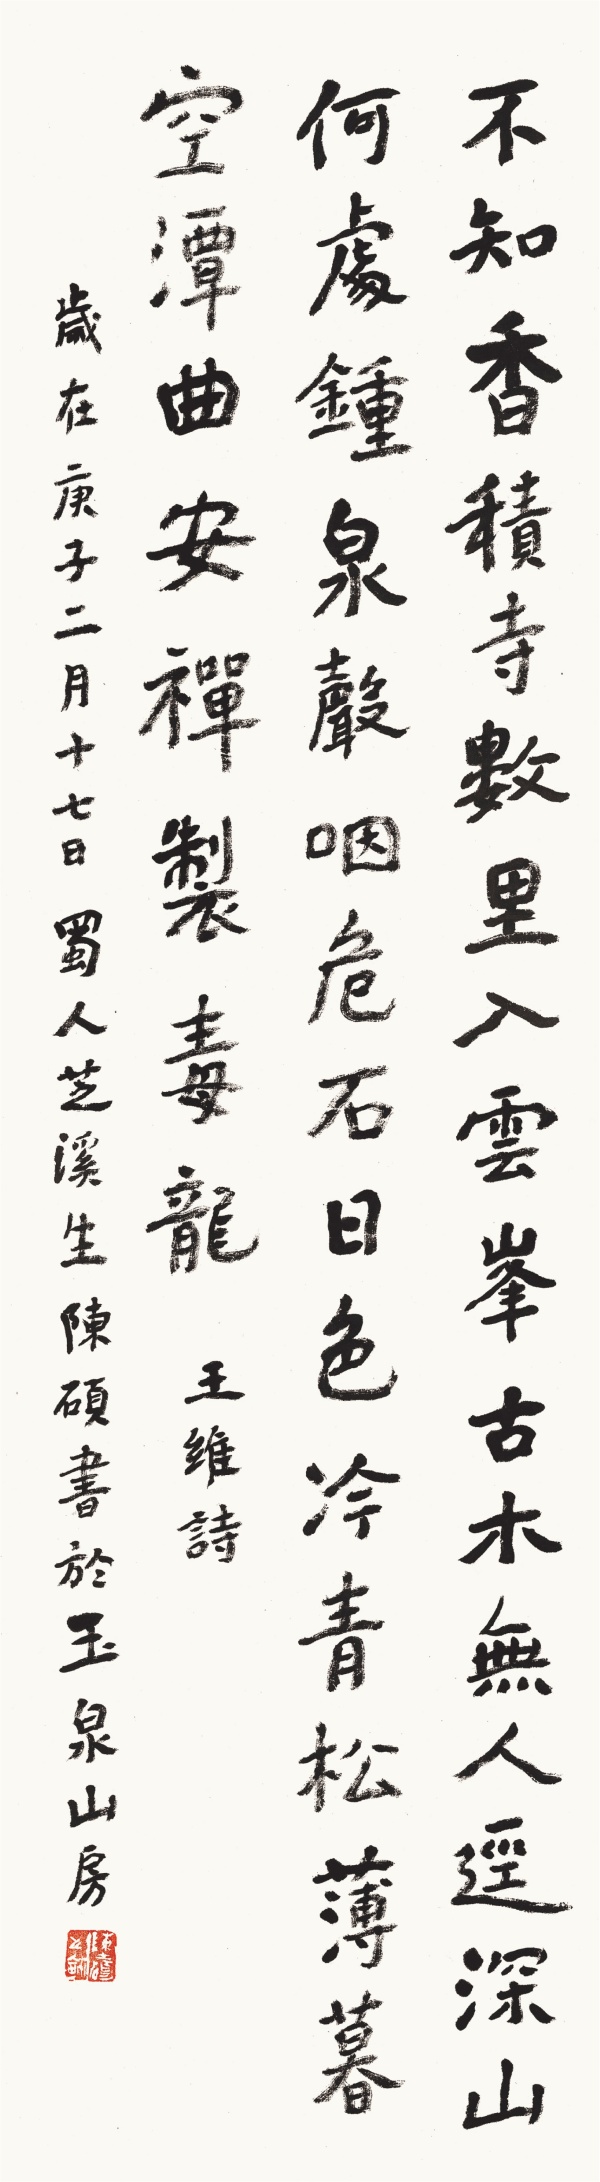 不知香積寺數里入雲峯古木無人逕深山
何處鍾泉聲咽危石日色冷青松薄暮
空潭曲安禪製毒龍
王維詩
歲在庚子二月十七日蜀人芝溪生陳碩書於玉泉山房